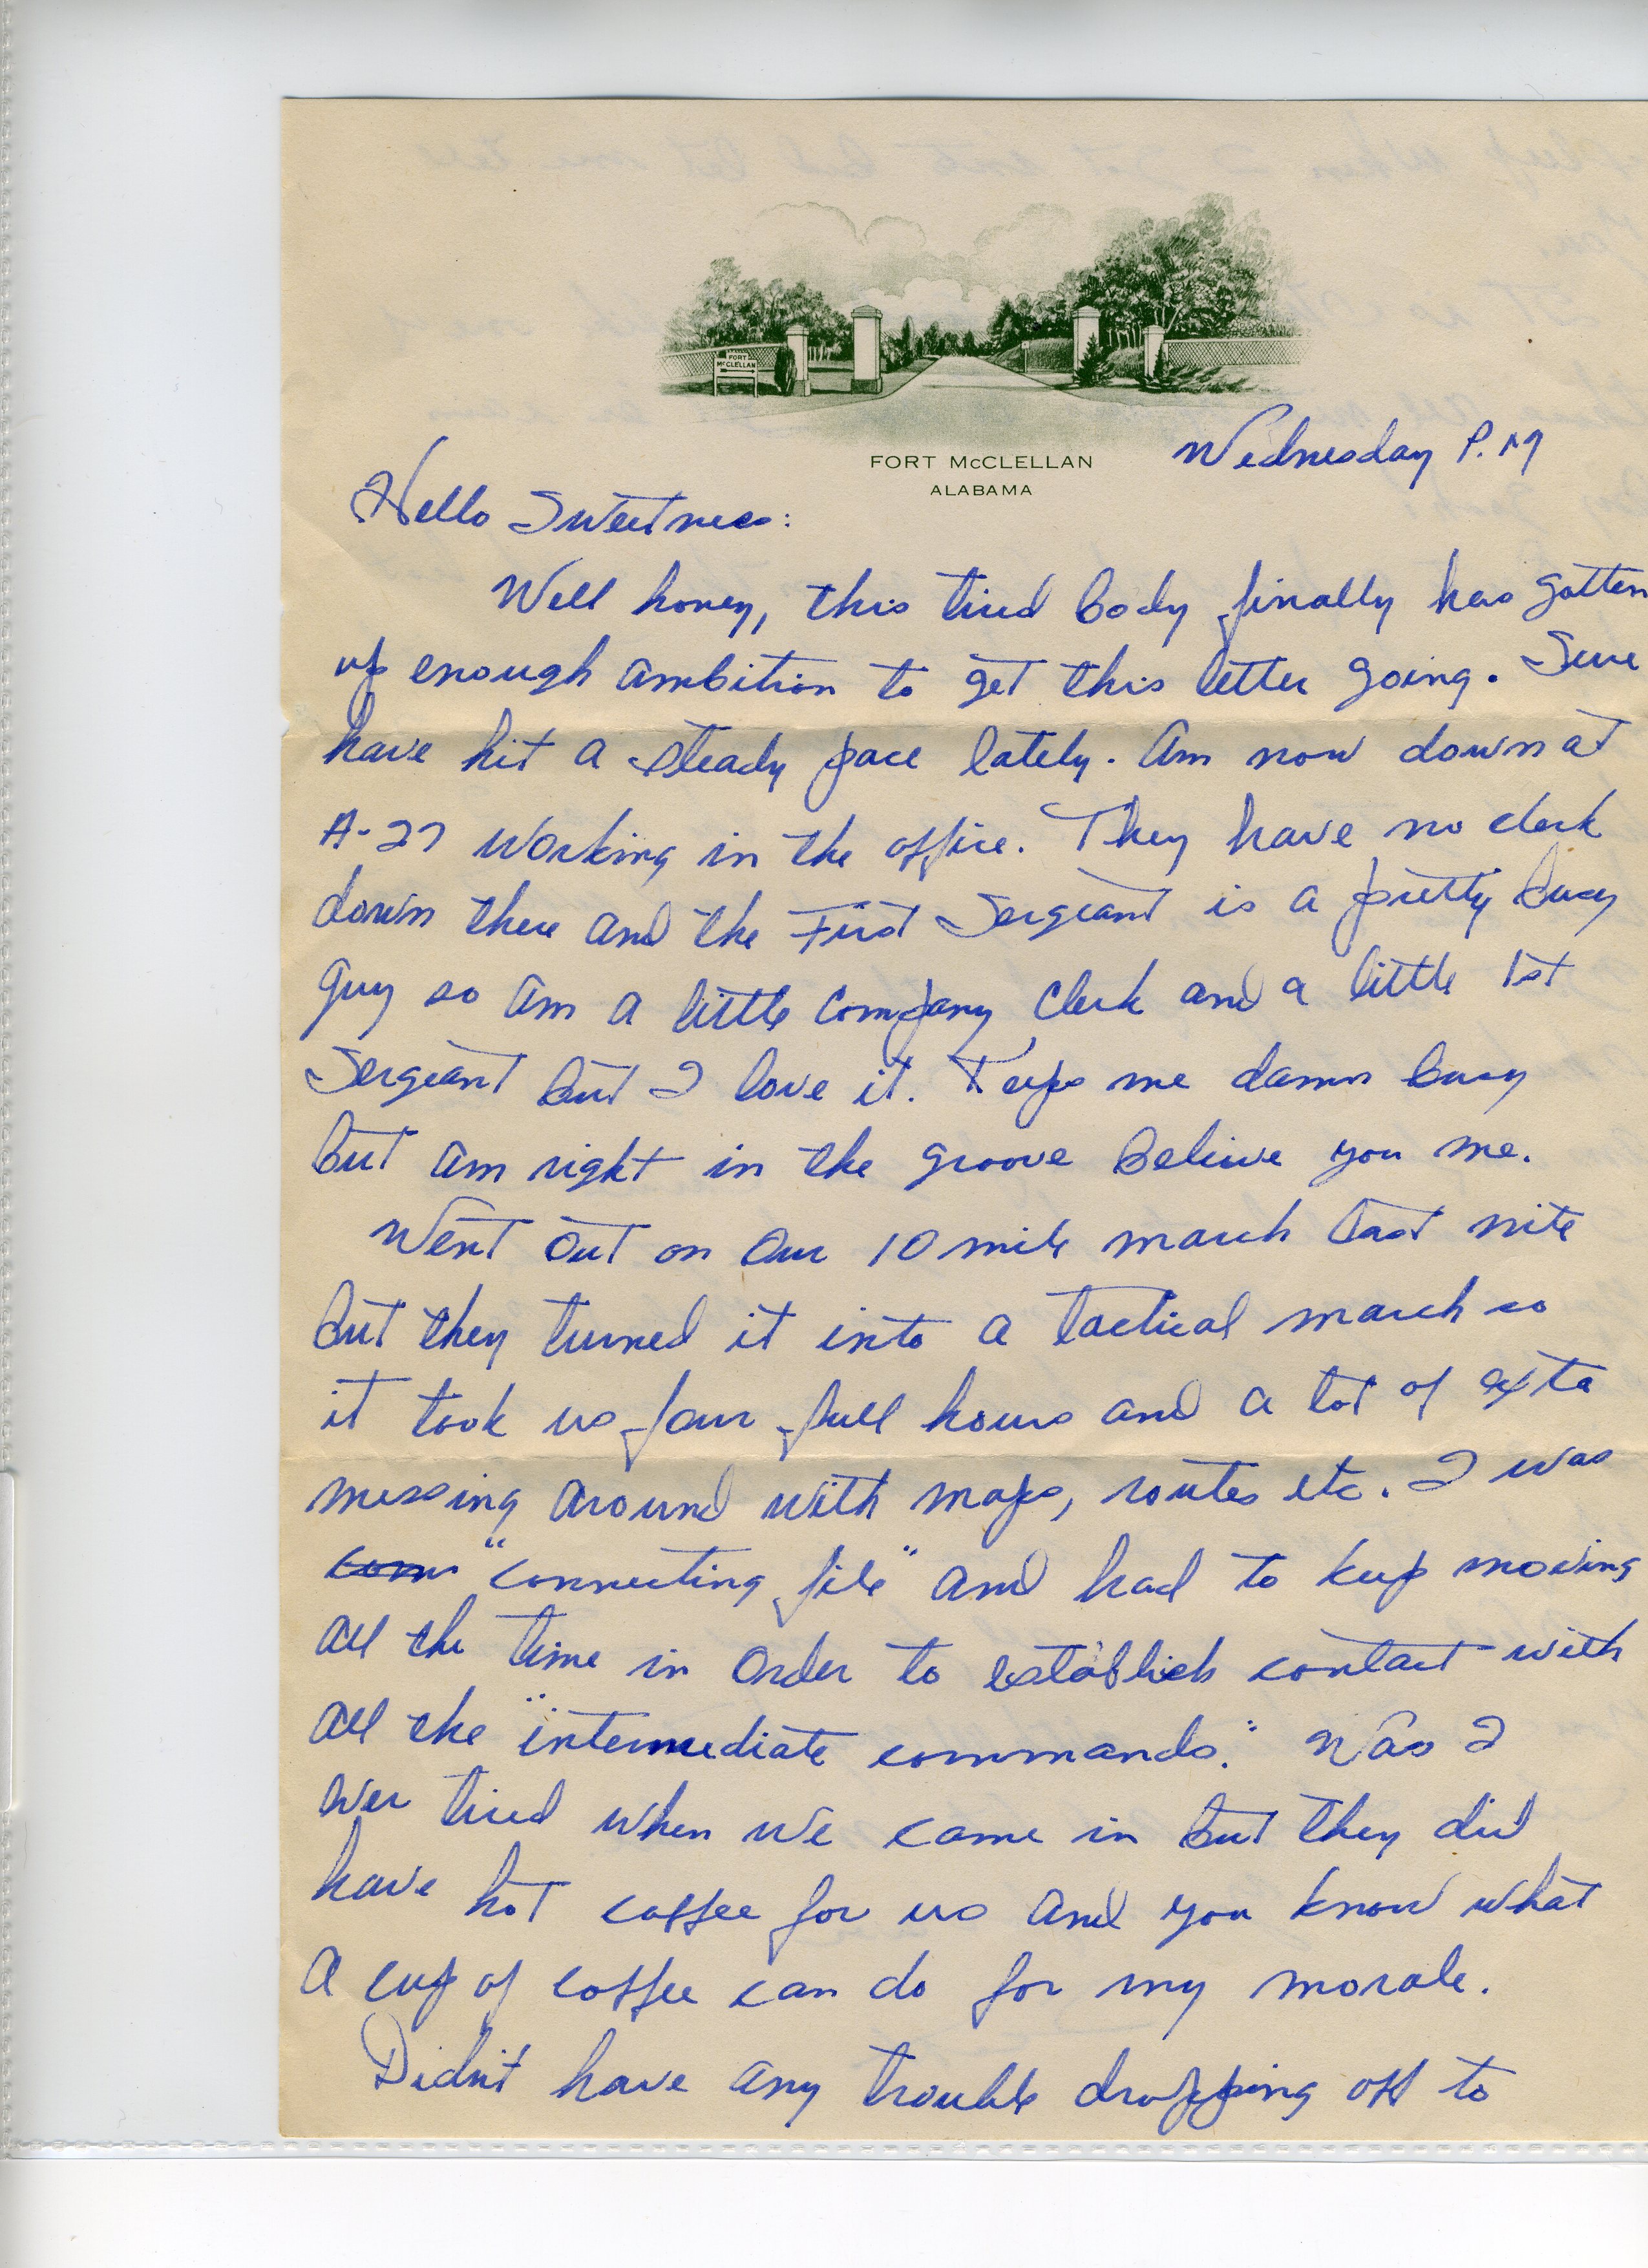 FORT
McCLELLAN
FORT McCLELLAN
ALABAMA
Wednesday P.M
Hello Sweetness:
Well honey, this tired body finally has gotten
up enough ambition to get this letter going. Sure
have hit a steady pace lately. Am now down at
A-27 working in the office. They have no clerk
down there and the First Sergeant is a pretty busy
guy so am a little company clerk and a little 1st
Sergeant but I love it. Keeps me damn busy
but am right in the groove believe you me.
Went out on our 10 mile march last nite
but they turned it into a tactical march so
it took us four full hours and a lot of exta
messing around with maps, routes etc. I was
"connecting file" and had to keep moving
all the time in order to establish contact with
all the "intermediate commands." Was I
ever tired when we came in but they did
have hot coffee for us and you know what
a cup of coffee can do for my morale.
Didn't have any trouble dropping off to